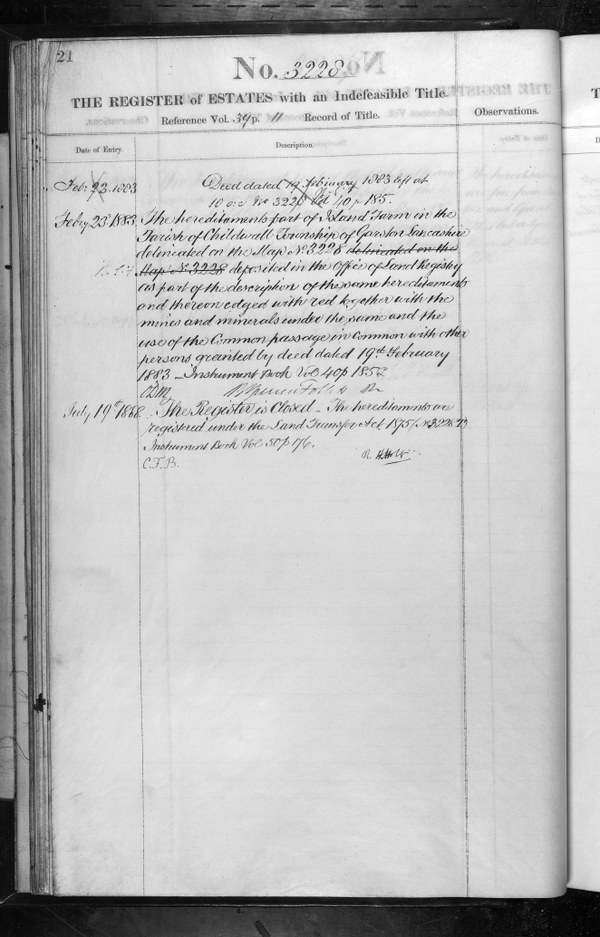 21
No. 3228
THE REGISTER of ESTATES with an Indefeasible Title.
Reference Vol. 39 p. 11 Record of Title.
Observations.
Date of Entry.
Description.
Feb: 23. 1883
Deed dated 19 February 1883 left at
10 o'c No 3228 Vol 40 p 185.
Feby 23 1883
The hereditaments part of Island Farm in the
Parish of Childwall Township of Garston Lancashire
delineated on the Map No. 3228 delineated on the
Map No. 3228 deposited in the Office of Land Registry
as part of the description of the same hereditaments
and thereon edged with red together with the
mines and minerals under the same and the
use of the Common passage in Common with other
persons granted by deed dated 19th February
1883 - Instrument Book Vol 40 p 185
July 19th 1888
The Register is Closed - The hereditaments are
registered under the Land Transfer Act 1875
Instrument Book Vol 50 p 176.
C.F.B.